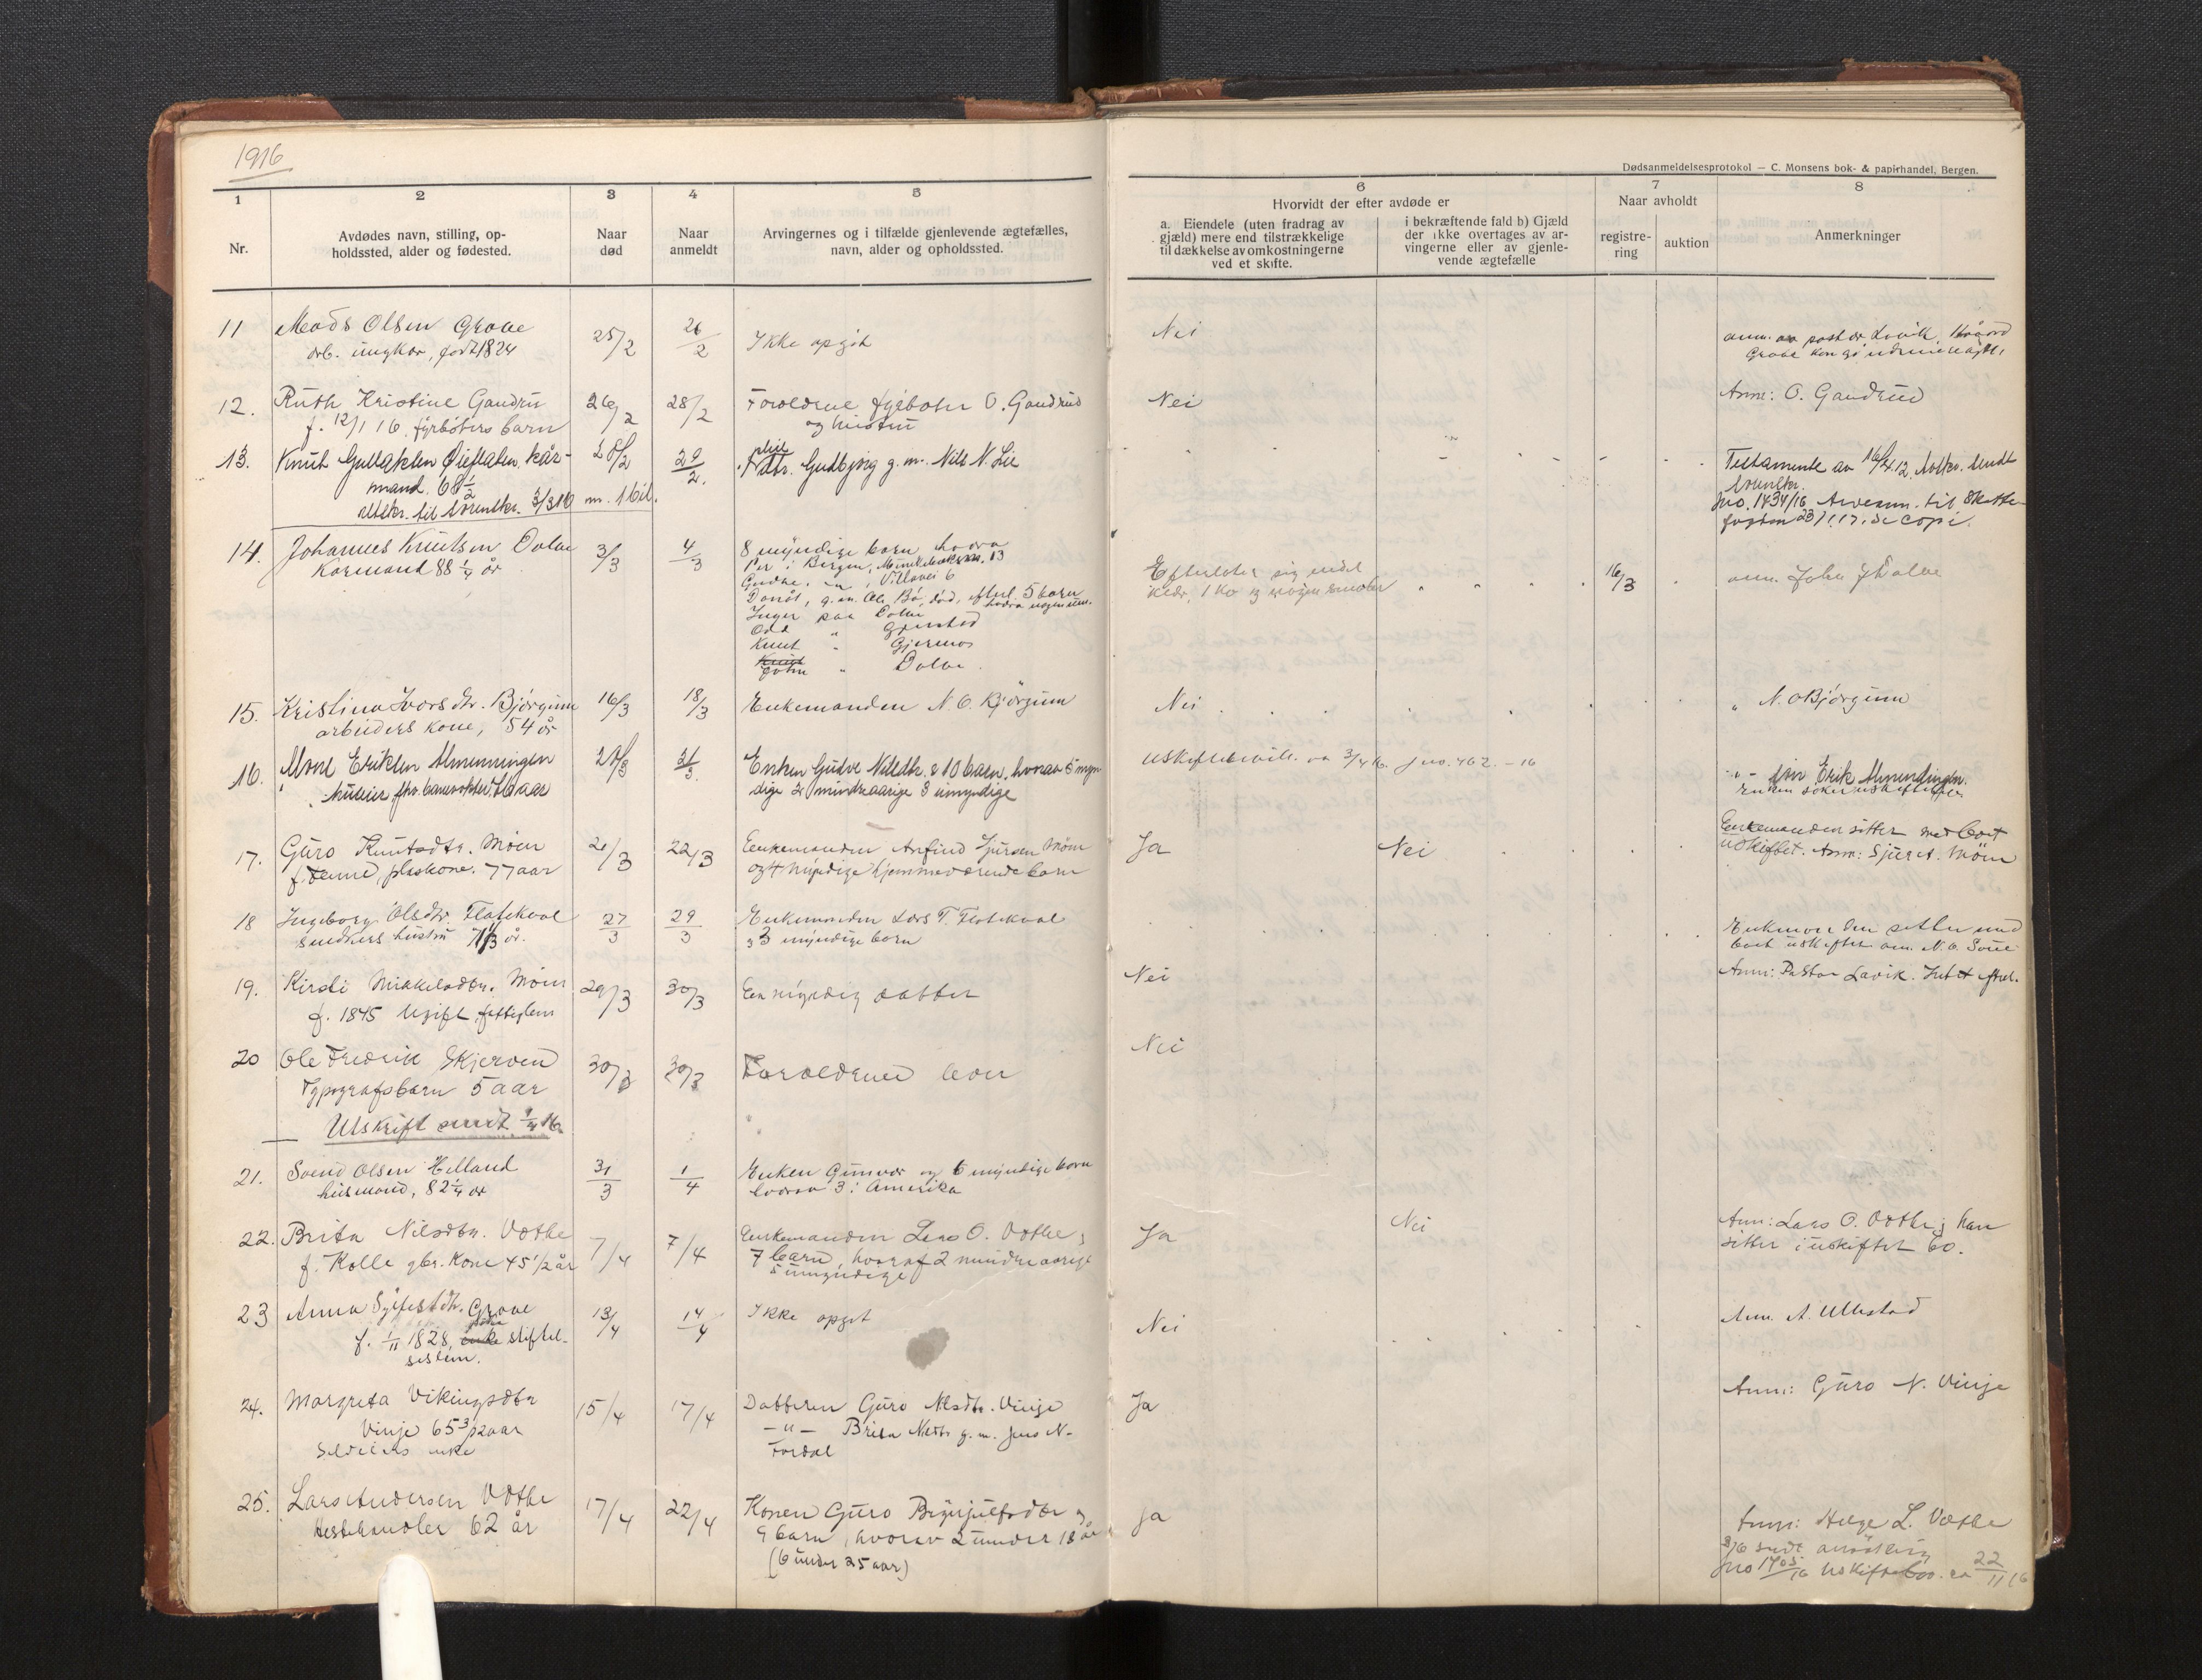 1916
Dødsanmeldelsesprotokol — C. Monsens bok- & papirhandel, Bergen.
1 2 3 4 5 6 7 8
Nr.
Avdødes navn, stilling, op-
holdssted, alder og fødested.
Naar
død
Naar
anmeldt
Arvingernes og i tilfælde gjenlevende ægtefælles,
navn, alder og opholdssted.
Hvorvidt der efter avdøde er
a. Eiendele (uten fradrag av
gjæld) mere end tilstrækkelige
til dækkelse av omkostningerne
ved et skifte.
i bekræftende fald b) Gjæld
der ikke overtages av ar-
vingerne eller av gjenle-
vende ægtefælle
Naar avholdt
registre-
ring
auktion
Anmerkninger
11 Mads Olsen Grove 25/2 26/2 Ikke opgit Nei
arb. ungkar, født 1824
anm. av pastor Lavik, Håvard
Grove kan gi
12. Ruth Kristine Gandru 26/2 28/2 Forældrene fyrbøter O. Gandrud Nei Anm: O. Gandrud
f. 12/1 16. fyrbøters barn og hustru
13. Knut Gullaksen Øieflaten kår- 28/2 29/2. pleie dtr. Gudbjørg g. m. Nils N. Lie
mand. 68 1/2
utskr. til Sorenskr. 3/3 16 m. 1 bil.
Testamente av 16/4.12
Sorenskr.
Jno. 1434/16 Arveanm. til Skatte-
fogden 23/1 17. se copi.
14. Johannes Knutsen Dolve 3/3 4/3 8 myndige barn, hvorav
Kårmand 88 1/4 år
Per i Bergen, 13
Gudve " i Villavei 6
g. m. Ole Bø, død, efterl. 5 barn
Inger paa Dolve
Odd " Gjerstad
Knut " Gjermos
Knut
John " Dolve
Efterlater sig endel
klær, 1 ko og nogen smaler 16/3 anm. John J Dolve
15. Kristina Ivarsdtr. Bjørgum 16/3 18/3 Enkemanden N. O. Bjørgum Nei " N. O Bjørgum
arbeiders kone, 54 år
16. Mons Eriksen Almenningen 20/3 21/3. Enken Gudve Nilsdtr. & 10 barn, hvorav 5 myn-
huseier, fhv. banevokter 76 aar
dige 2 mindreaarige 3 umyndige
Uskiftebevill. av 3/4 16. Jno. 462 - 16
" - søn Erik Almendingen.
enken søker uskiftet
17. Guro Knutsdtr. Møen 21/3 22/3 Enkemanden Anfind Sjursen Møen Ja Nei
f. plaskone. 77 aar
og 4 myndige hjemmeværende barn
Enkemanden sitter med boet
uskiftet. Anm: Sjur A. Møen
18 Ingeborg Olsdtr. Flatekval 27/3 29/3 Enkemanden Lars T. Flatekval
snedkers hustru 71 1/3 år.
og 3 myndige barn
Enkemanden sitter med
boet uskiftet. anm. N. O. Soue
19. Kirsti Mikelsdtr. Møen 29/3 30/3 En myndig datter Nei Anm: Pastor Lavik. Intet efterl.
f. 1845 Ugift, fattiglem
20 Ole Fredrik Skjerven 30/3 30/3 Forældrene lever Nei
Typografsbarn 5 aar
Utskrift sendt 1/4 16
21. Svend Olsen Helland 31/3 1/4 Enken Gunvor og 6 myndige barn
husmand, 82 1/4 år
hvorav 3 i Amerika
22. Brita Nilsdtr. Vethe 7/4 7/4 Enkemanden Lars O. Vethe; Ja Nei
f. Kolle gbr. kone 45 1/2 år
7 barn, hvoraf 2 mindreaarige
5 umyndige
Anm: Lars O. Vethe; han
sitter i uskiftet bo.
23 Anna Sylfestdtr. Grove 13/4 14/4 Ikke opgit Nei Anm. A. Ullestad
f. 1/11 1828, enke stiftel-
seslem.
24. Margreta Vikingsdtr 15/4 17/4 Datteren Guro Nilsdtr. Vinje Ja Anm: Guro N. Vinje
Vinje 65 3/12 aar
enke
— " — Brita Nilsdtr g. m. Jens N-
25. Lars Andersen Vethe 17/4 22/4 Konen Guro Brynjulfsdtr og Ja
Hestehandler 62 år
9 barn, hvorav 2 under 18 år
(6 under 25 aar)
Anm: Helge L. Vethe
3/6 sendt ansøkning
Jno 1705/16 uskiftebev. av 22/11 16